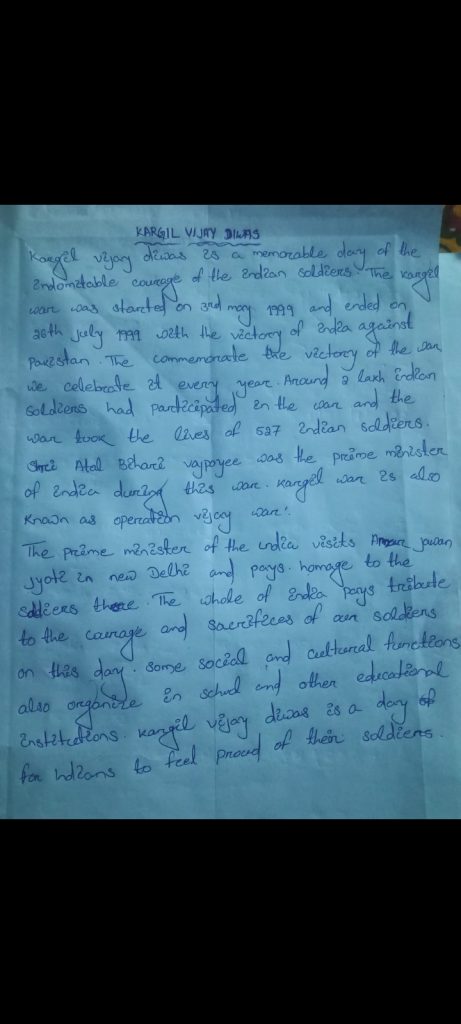 KARGIL VIJAY DIWAS
Kargil vijay diwas is a memorable day of the
indomitable courage of the indian soldiers. The kargil
war was started on 3rd may 1999 and ended on
26th july 1999 with the victory of india against
Pakistan. The commemorate the victory of the war
we celebrate it every year. Around 2 lakh indian
soldiers had participated in the war and the
war took the lives of 527 indian soldiers.
Shri Atal Bihari vajpayee was the prime minister
of india during this war. kargil war is also
known as operation vijay war'.
The prime minister of the india visits Amar jawan
jyoti in new Delhi and pays. homage to the
soldiers there. The whole of india pays tribute
to the courage and sacrifices of our soldiers
on this day. some social and cultural functions
also organize in school and other educational
institutions. kargil vijay diwas is a day of
for Indians to feel proud of their soldiers.